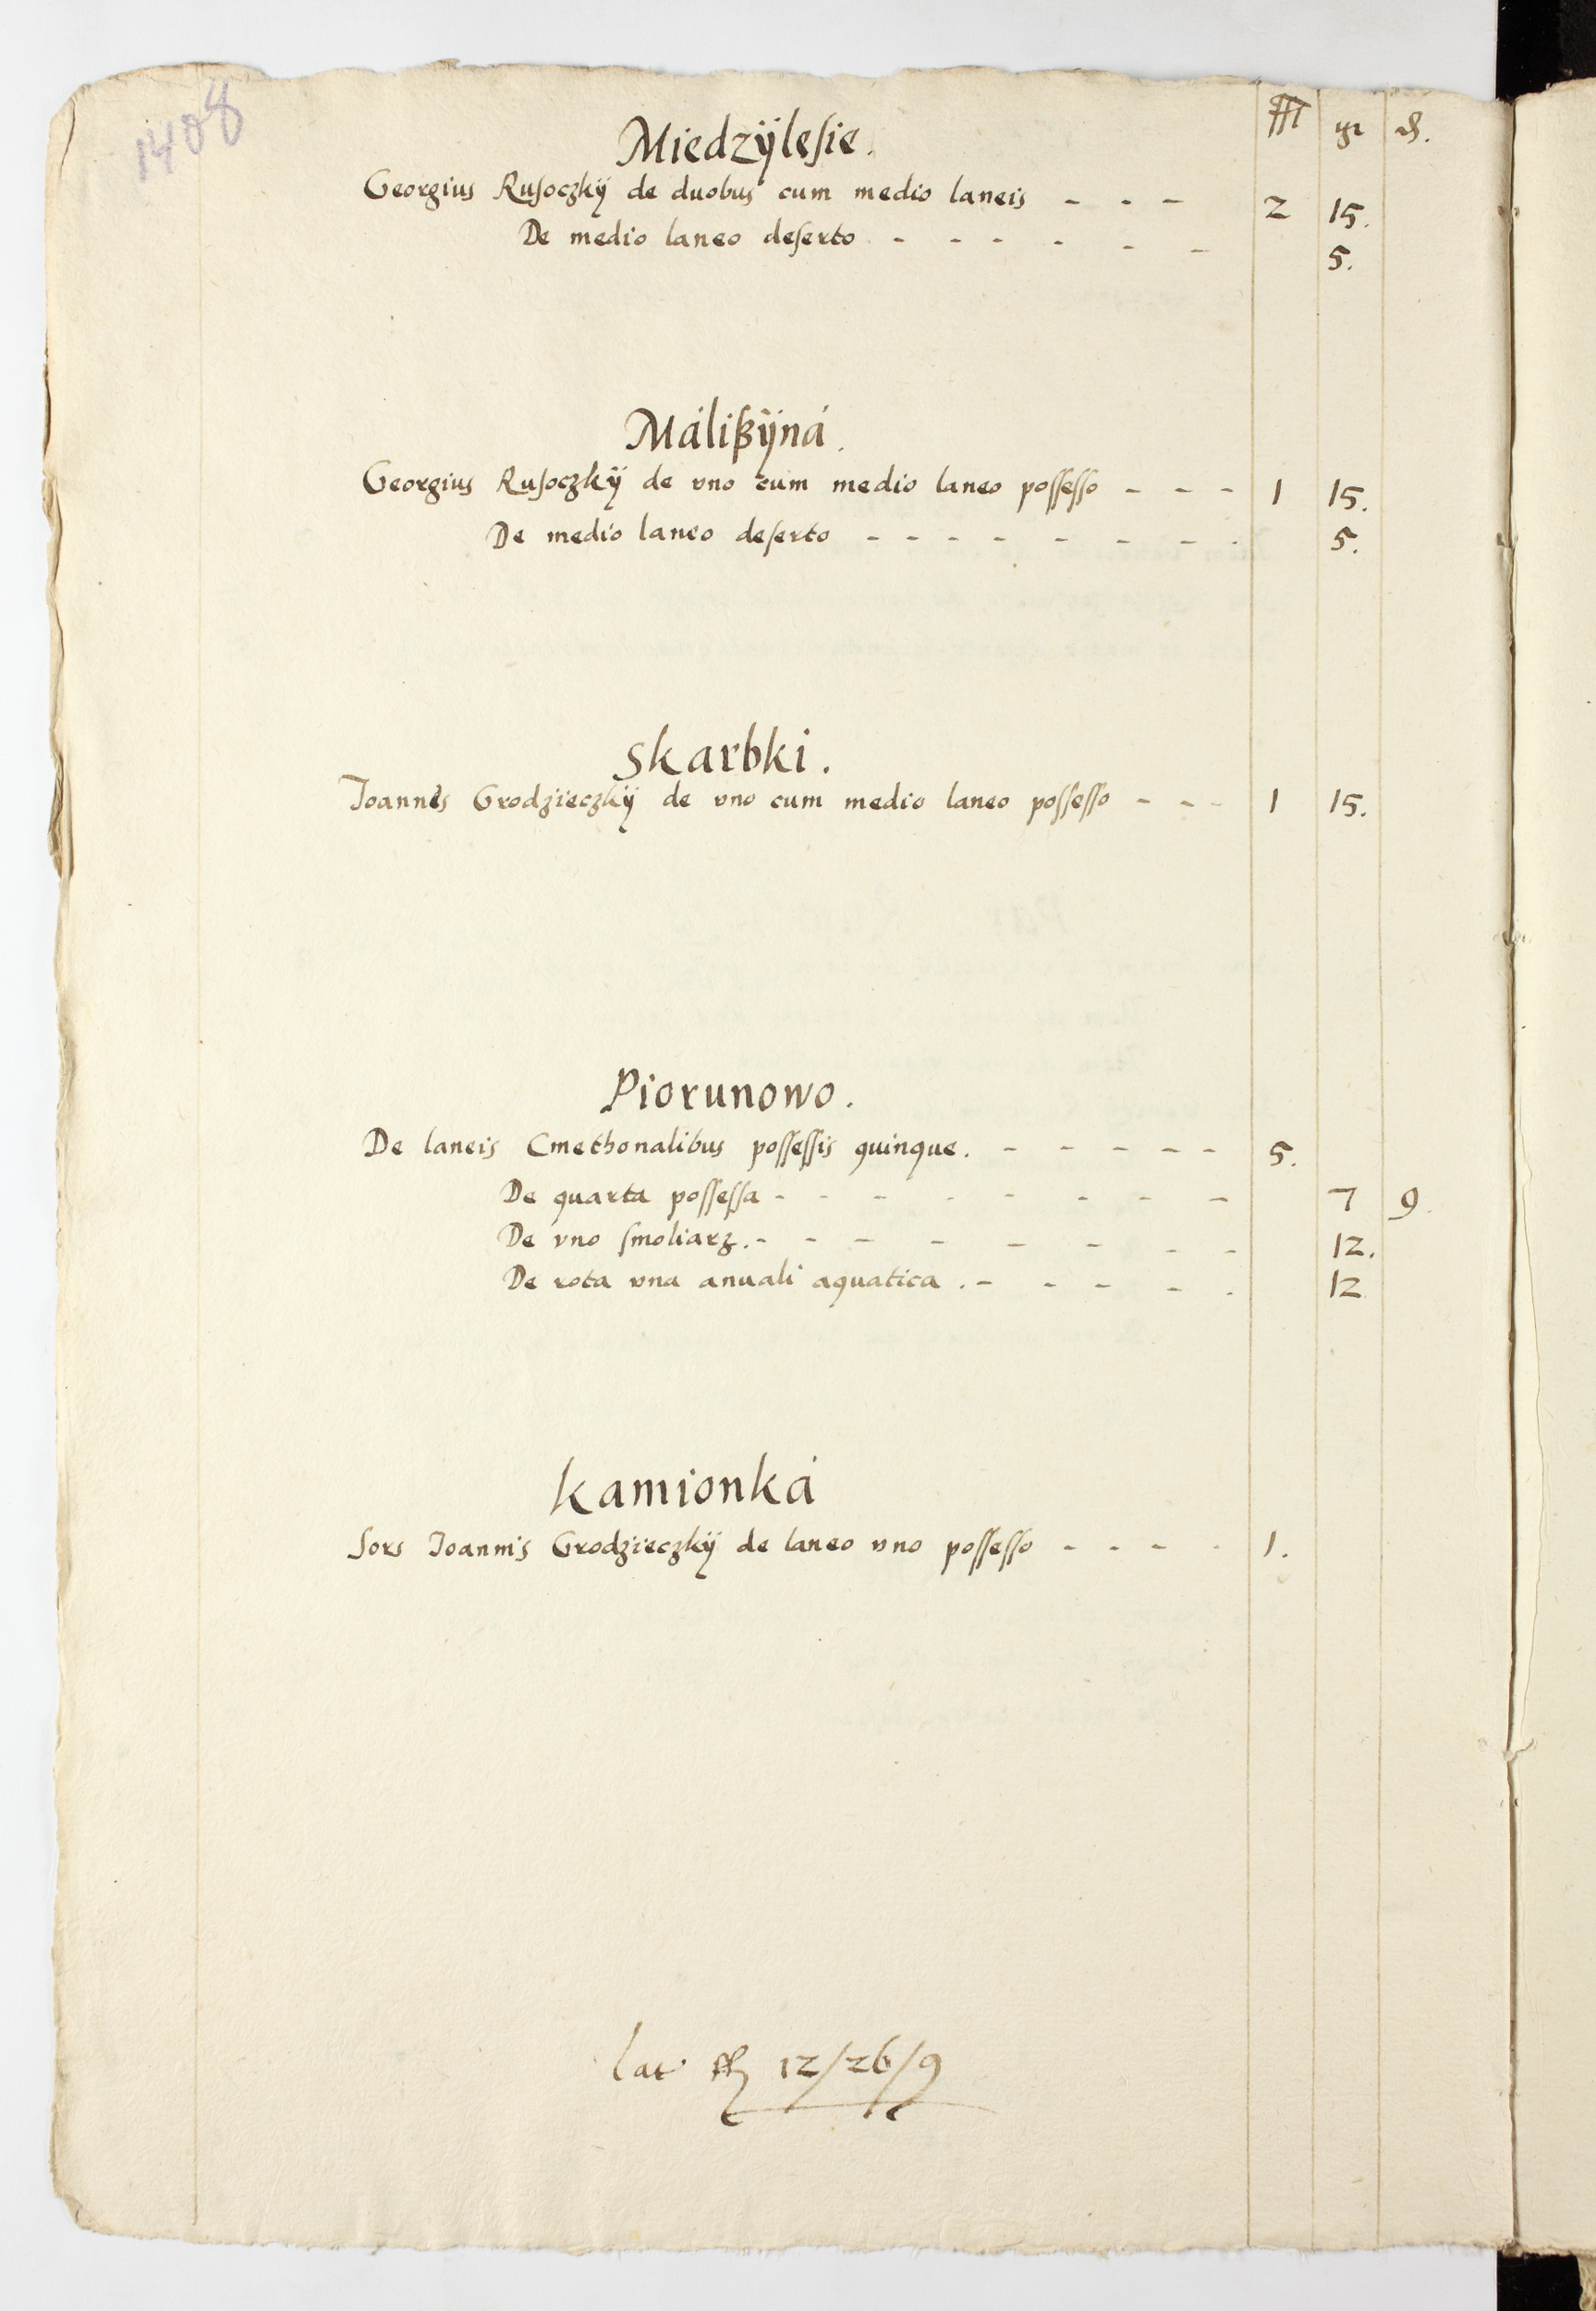 1408
ffl gr d.
Miedzÿlesie.
Georgius Rusoczkÿ de duobus cum medio laneis - - - 2 15.
De medio laneo deserto - - - - - - 5.
Málißÿná.
Georgius Rusoczkÿ de vno cum medio laneo possesso - - - 1 15.
De medio laneo deserto - - - - - - - - 5.
Skarbki.
Joannes Grodzieczkÿ de vno cum medio laneo possesso - - - 1 15.
Piorunowo.
De laneis Cmethonalibus possessis quinque. - - - - - 5.
De quarta possessa - - - - - - - - 7 9.
De vno smoliarz. - - - - - - - - 12.
De rota vna anuali aquatica. - - - - - 12
Kamionká
Sors Joannis Grodzieczkÿ de laneo vno possesso - - - - 1.
lat ff 12/26/9